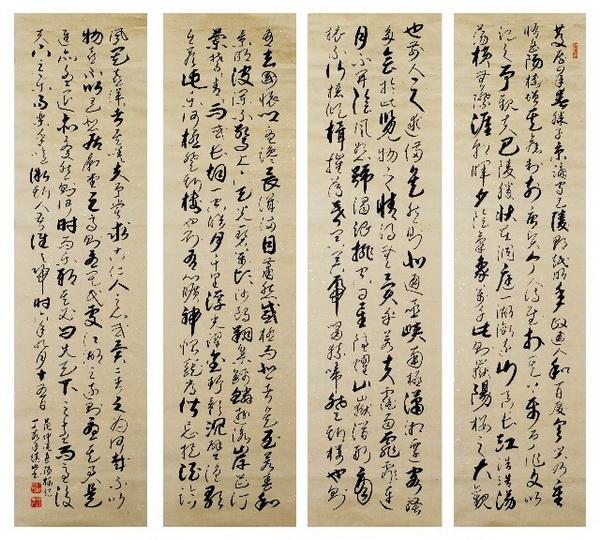 慶曆四年春滕子京謫守巴陵郡越明年政通人和百廢具興乃重
修岳陽樓增其舊制刻唐賢今人詩賦於其上屬予作文以
記之予觀夫巴陵勝狀在洞庭一湖銜遠山吞長江浩浩湯
湯橫無際涯朝暉夕陰氣象萬千此則嶽陽樓之大觀
也前人之述備矣然則北通巫峽南極瀟湘遷客騷
人多會於此覽物之情得無異乎若夫霪雨霏霏連
月不開陰風怒號濁浪排空日星隱耀山嶽潛形商
旅不行檣傾楫摧薄暮冥冥虎嘯猿啼登斯樓也則
有去國懷鄉憂讒畏譏滿目蕭然感極而悲者矣至若春和
景明波瀾不驚上下天光一碧萬頃沙鷗翔集錦鱗游泳岸芷汀
蘭郁郁青青而或長煙一空皓月千里浮光躍金靜影沉璧漁歌
互答此樂何極登斯樓也則有心曠神怡寵辱皆忘把酒臨
風其喜洋洋者矣嗟夫予嘗求古仁人之心或異二者之為何哉不以
物喜不以己悲居廟堂之高則憂其民處江湖之遠則憂其君是
進亦憂退亦憂然則何時而樂耶其必曰先天下之憂而憂後
天下之樂而樂乎噫微斯人吾誰與歸時六年九月十五日
范仲淹岳陽樓記